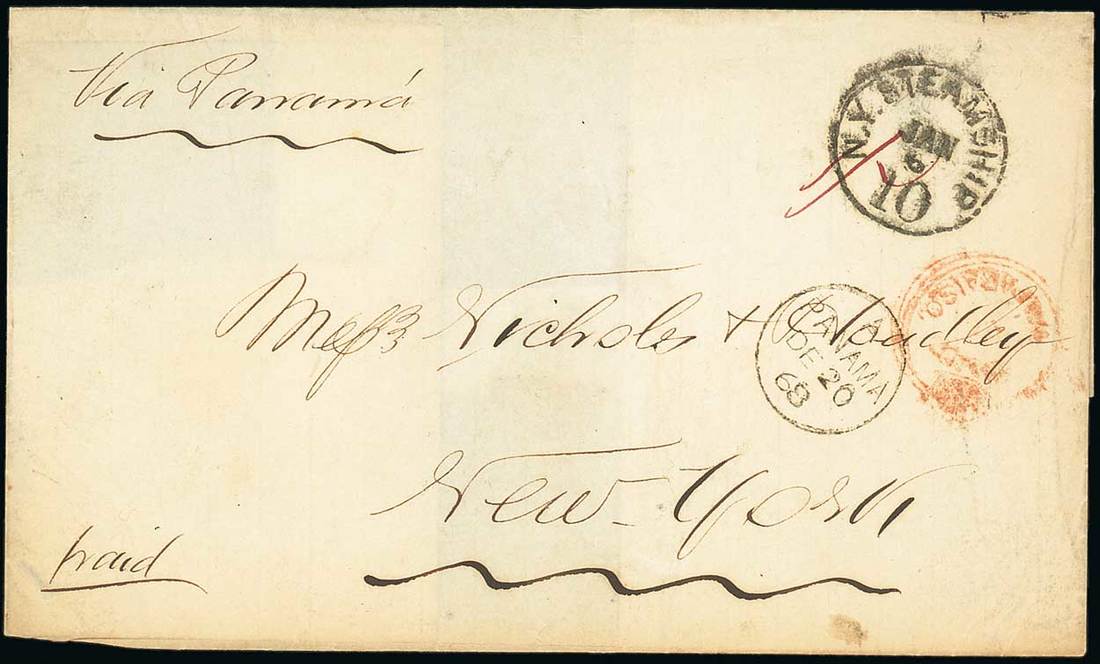 Via Panamá
N.Y. STEAMSHIP
JAN
6
10
1/
Messrs Nicholes & Hoadley
A
PANAMA
DE 20
68
New-York
paid